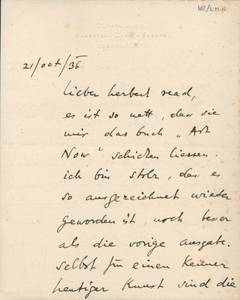 21/oct/36
lieber herbert read,
es ist so nett, dass sie
mir das buch „Art
Now" schicken liessen.
ich bin stolz, dass es
so ausgezeichnet wieder
geworden ist, noch
als die vorige ausgabe.
selbst für einen Kenner
heutiger Kunst sind die